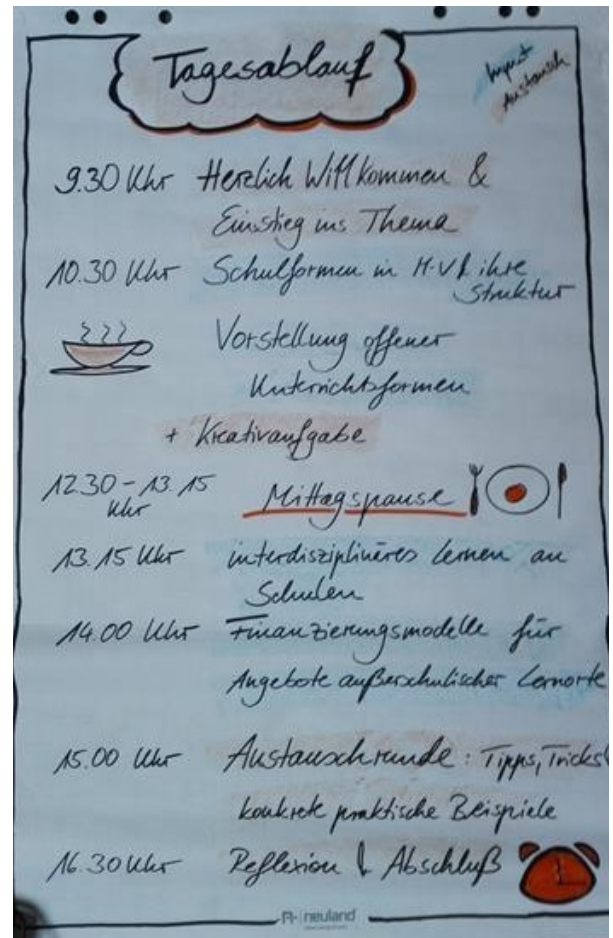 Tagesablauf
Input
Austausch
9.30 Uhr Herzlich Willkommen &
Einstieg ins Thema
10.30 Uhr Schulformen in M-V & ihre
Struktur
Vorstellung offener
Unterrichtsformen
+ Kreativaufgabe
12.30 - 13.15
Uhr Mittagspause
13.15 Uhr interdisziplinäres Lernen an
Schulen
14.00 Uhr Finanzierungsmodelle für
Angebote außerschulischer Lernorte
15.00 Uhr Austauschrunde: Tipps, Tricks &
konkrete praktische Beispiele
16.30 Uhr Reflexion & Abschluß
neuland